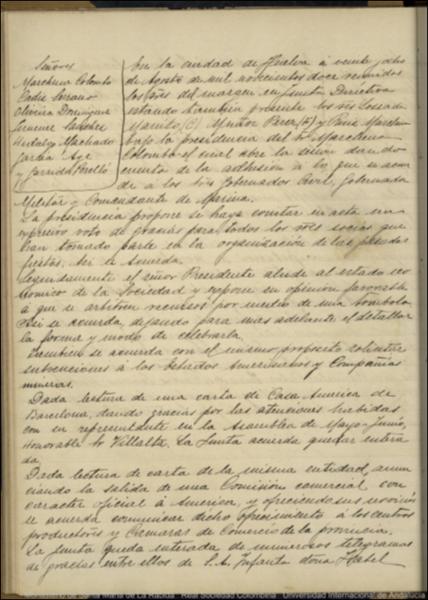 Señores
Marchena Colombo
Cadiz Serrano
Oliveira Domínguez
Jimenez Sanchez
Hidalgo Machado
García Aye
y Garrido Perelló
En la ciudad de Huelva a veinte y ocho
de Agosto de mil novecientos doce reunidos
los sres del margen en Junta Directiva
estando tambien presente los sres
(C) Muñoz Perez (F) y
bajo la presidencia del Sr Marchena
Colombo el cual abre la sesión dando
cuenta de la adhesión a lo que se acuer
de á los sres Gobernador Civil, Gobernador
Militar y Comandante de Marina.
La presidencia propone se haga constar en acta un
expresivo voto de gracias para todos los sres socios que
han tomado parte en la organización de las pasadas
fiestas. Así se acuerda.
Seguidamente el señor Presidente alude al estado eco
nómico de la Sociedad y expone su opinión favorable
á que se arbitren recursos por medio de una tómbola
Así se acuerda, dejando para mas adelante el detallar
la forma y modo de celebrarla.
Tambien se acuerda con el mismo proposito solicitar
subvenciones á los Estados Americanos y Compañías
mineras.
Dada lectura de una carta de Casa America de
Barcelona, dando gracias por las atenciones habidas
con su representante en la Asamblea de Mayo-Junio,
Honorable Sr Villalta, La Junta acuerda quedar entera
da.
Dada lectura de carta de la misma entidad, anun
ciando la salida de una Comisión comercial con
carácter oficial á America, y ofreciendo sus
se acuerda comunicar dicho ofrecimiento á los centros
productores y Cámaras de Comercio de la provincia.
La Junta queda enterada de numerosos telegramas
de gracias entre ellos de S.A. Infanta doña Isabel
Universidad Internacional de Andalucía